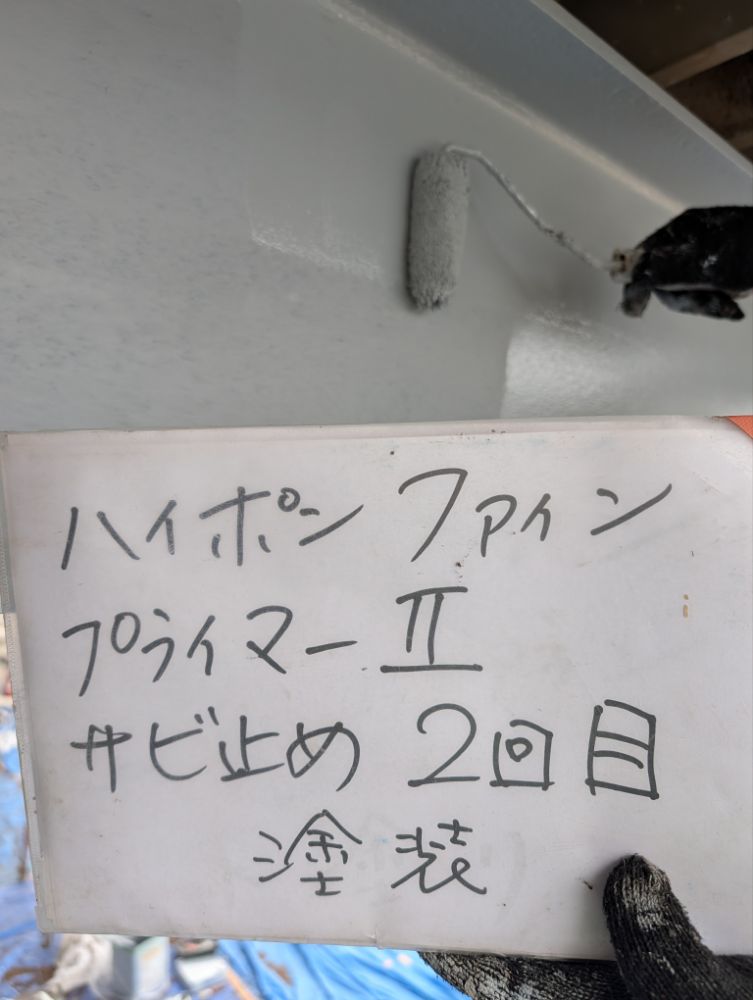 ハイポン ファイン
プライマーⅡ
サビ止め 2回目
塗装